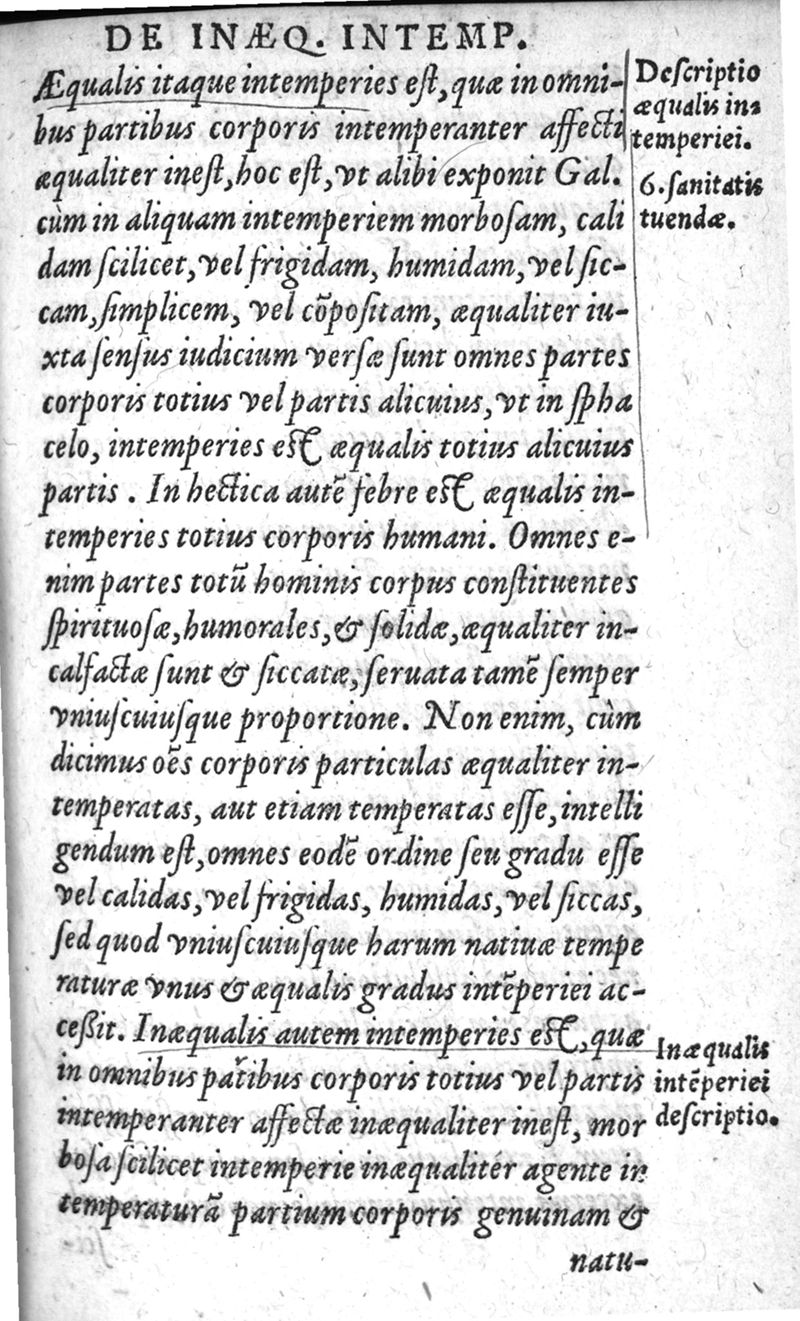 DE INÆQ. INTEMP.
Æqualis itaque intemperies eſt, quæ in omni-
bus partibus corporis intemperanter affecti
æqualiter ineſt, hoc eſt, vt alibi exponit Gal.
cùm in aliquam intemperiem morboſam, cali
dam ſcilicet, vel frigidam, humidam, vel ſic-
cam, ſimplicem, vel cõpoſitam, æqualiter iu-
xta ſenſus iudicium verſæ ſunt omnes partes
corporis totius vel partis alicuius, vt in ſpha
celo, intemperies eſt æqualis totius alicuius
partis. In hectica autẽ febre eſt æqualis in-
temperies totius corporis humani. Omnes e-
nim partes totũ hominis corpus conſtituentes
ſpirituoſæ, humorales, & ſolidæ, æqualiter in-
calfactæ ſunt & ſiccatæ, ſeruata tamẽ ſemper
vniuſcuiuſque proportione. Non enim, cùm
dicimus oẽs corporis particulas æqualiter in-
temperatas, aut etiam temperatas eſſe, intelli
gendum eſt, omnes eodẽ ordine ſeu gradu eſſe
vel calidas, vel frigidas, humidas, vel ſiccas,
ſed quod vniuſcuiuſque harum natiuæ tempe
raturæ vnus & æqualis gradus intẽperiei ac-
ceßit. Inæqualis autem intemperies eſt, quæ
in omnibus partibus corporis totius vel partis
intemperanter affectæ inæqualiter ineſt, mor
boſa ſcilicet intemperie inæqualiter agente in
temperaturã partium corporis genuinam &
natu-
Deſcriptio
æqualis in-
temperiei.
6. ſanitatis
tuendæ.
Inæqualis
intẽperiei
deſcriptio.